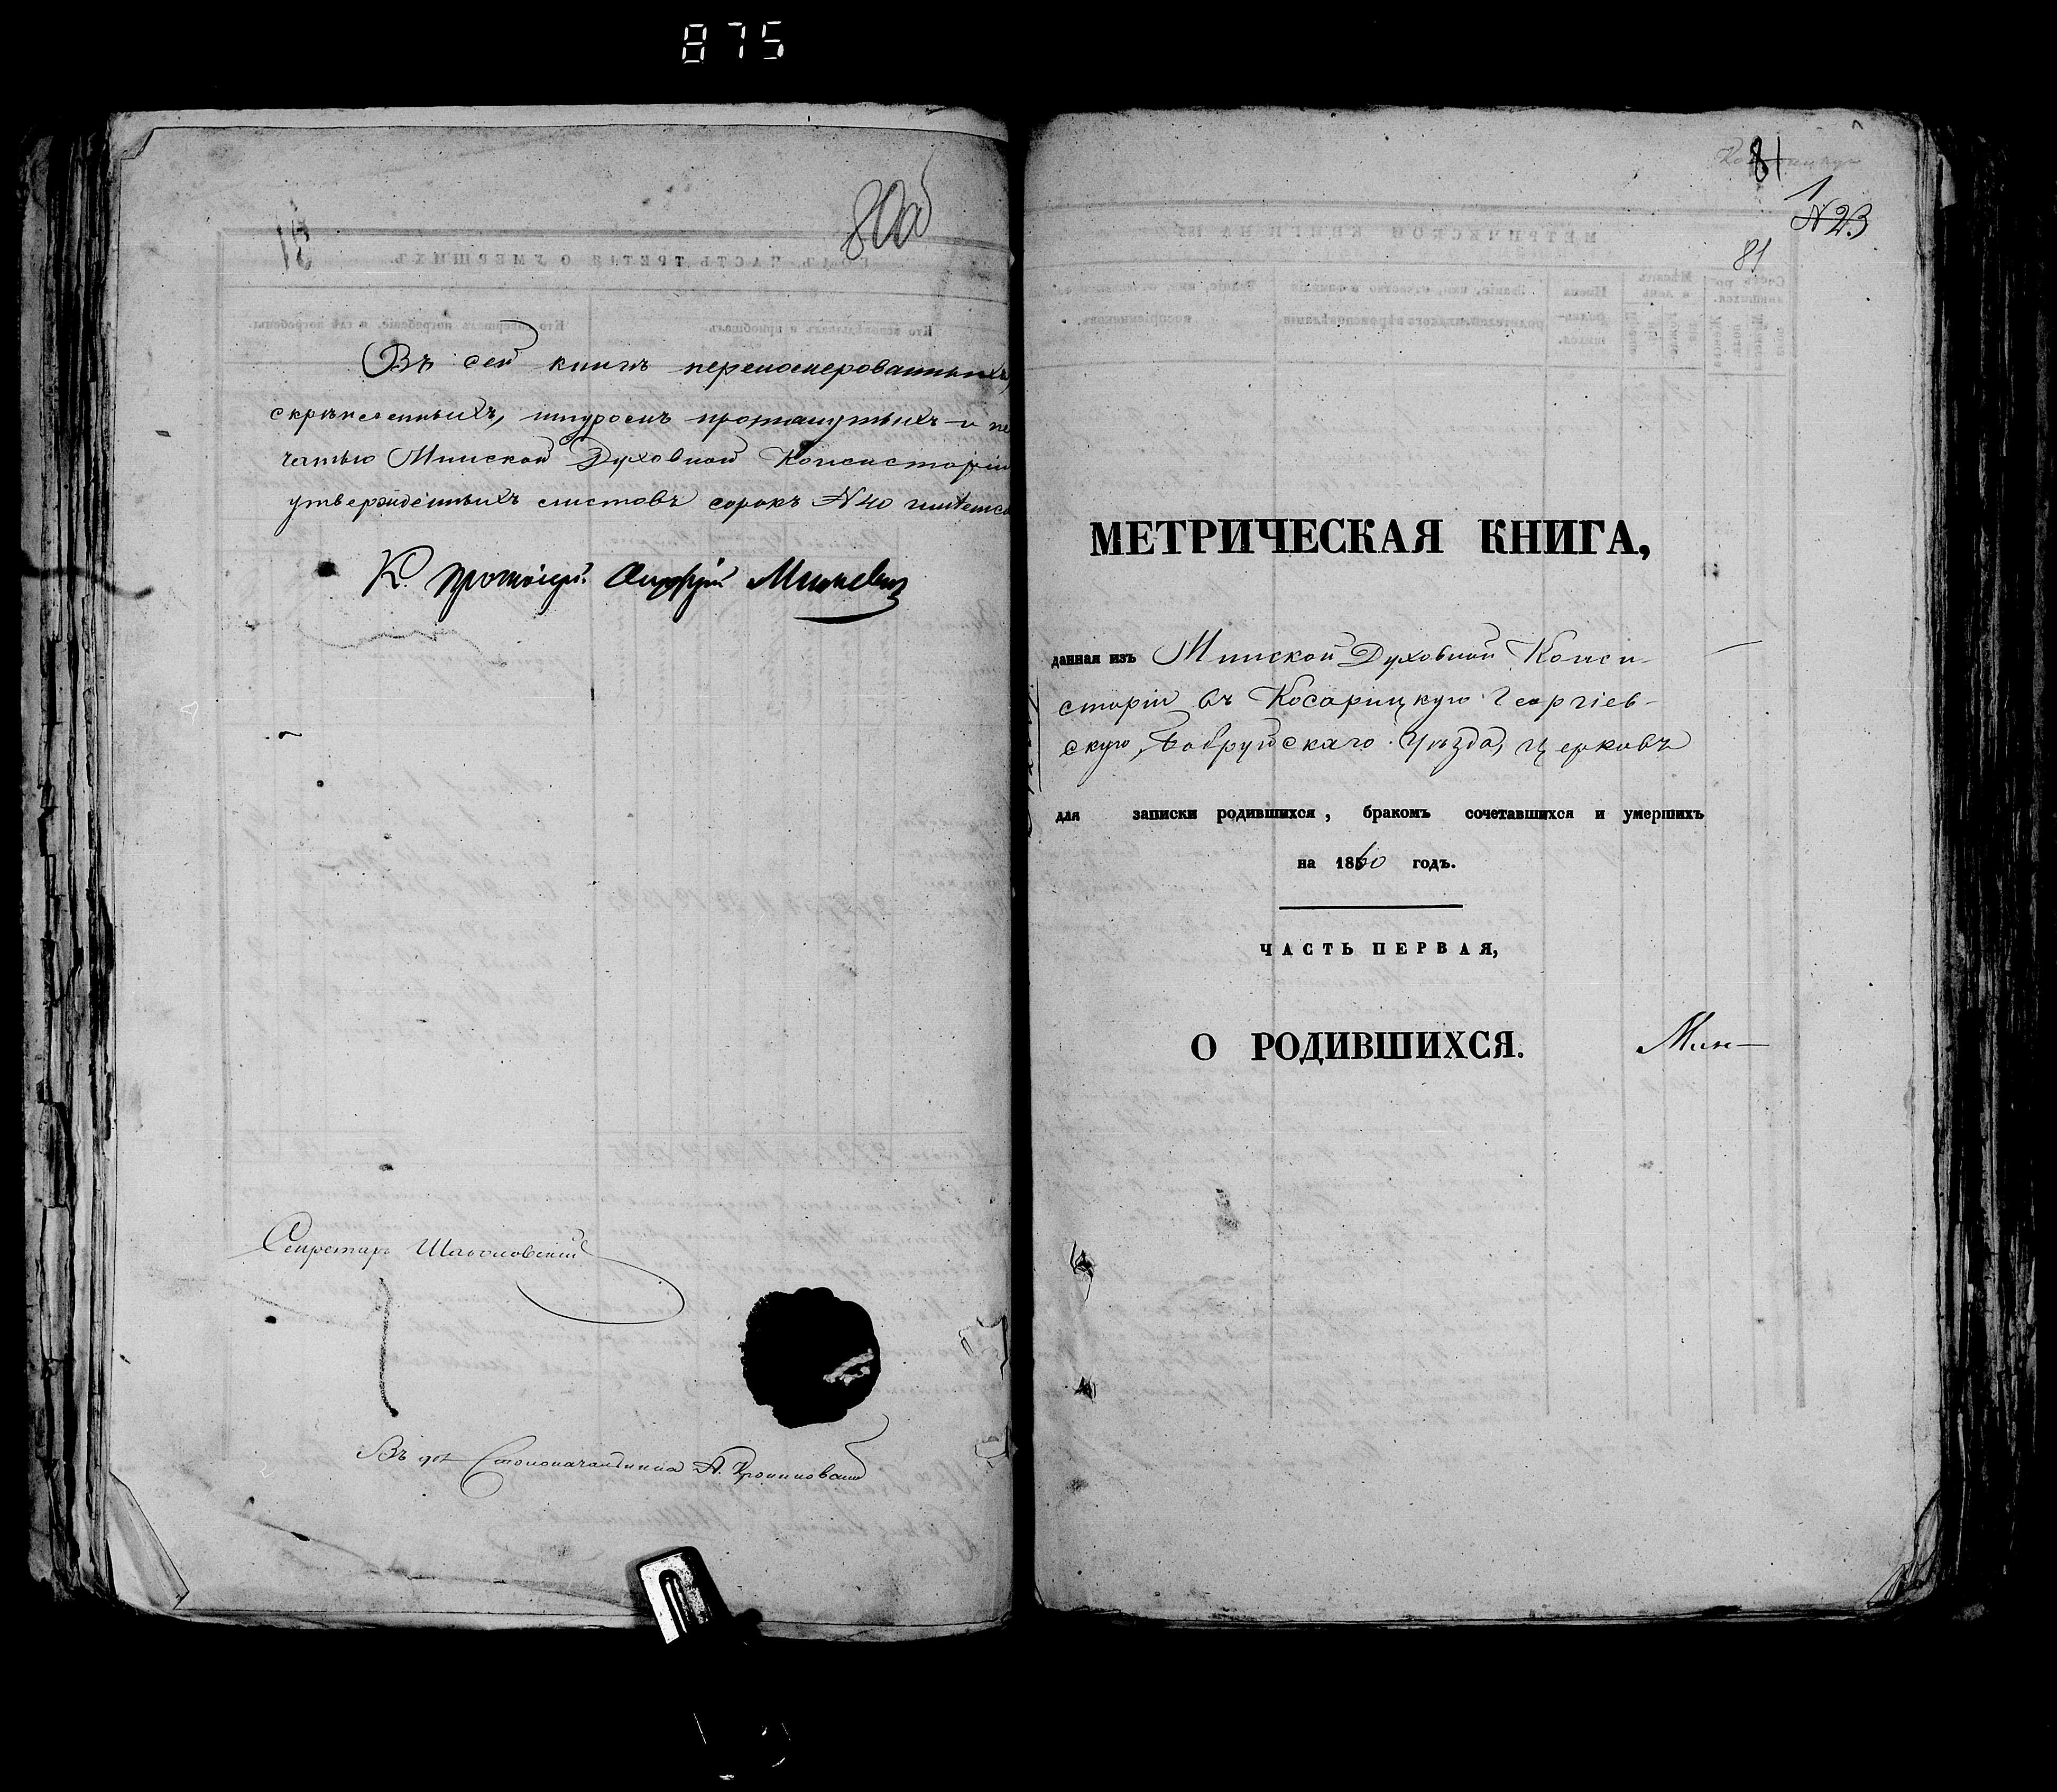 875
80об
Въ сей книгѣ переномерованныхъ,
скрѣпленныхъ, шнуромъ протянутыхъ и пе
чатью Минской Духовной Консисторіи
утвержденныхъ листовъ сорокъ №40 имѣетса
К. Протоіерей
Секретарь
Въ дол. Столоначальника А.
81
1
№23
81
МЕТРИЧЕСКАЯ КНИГА,
данная изъ Минской Духовной Конси-
сторіи въ Косарицкую Георгіев-
скую, Бобруйскаго Уѣзда, церковь
для записки родившихся, бракомъ сочетавшихся и умершихъ
на 1860 годъ.
ЧАСТЬ ПЕРВАЯ,
О РОДИВШИХСЯ.
Мин-